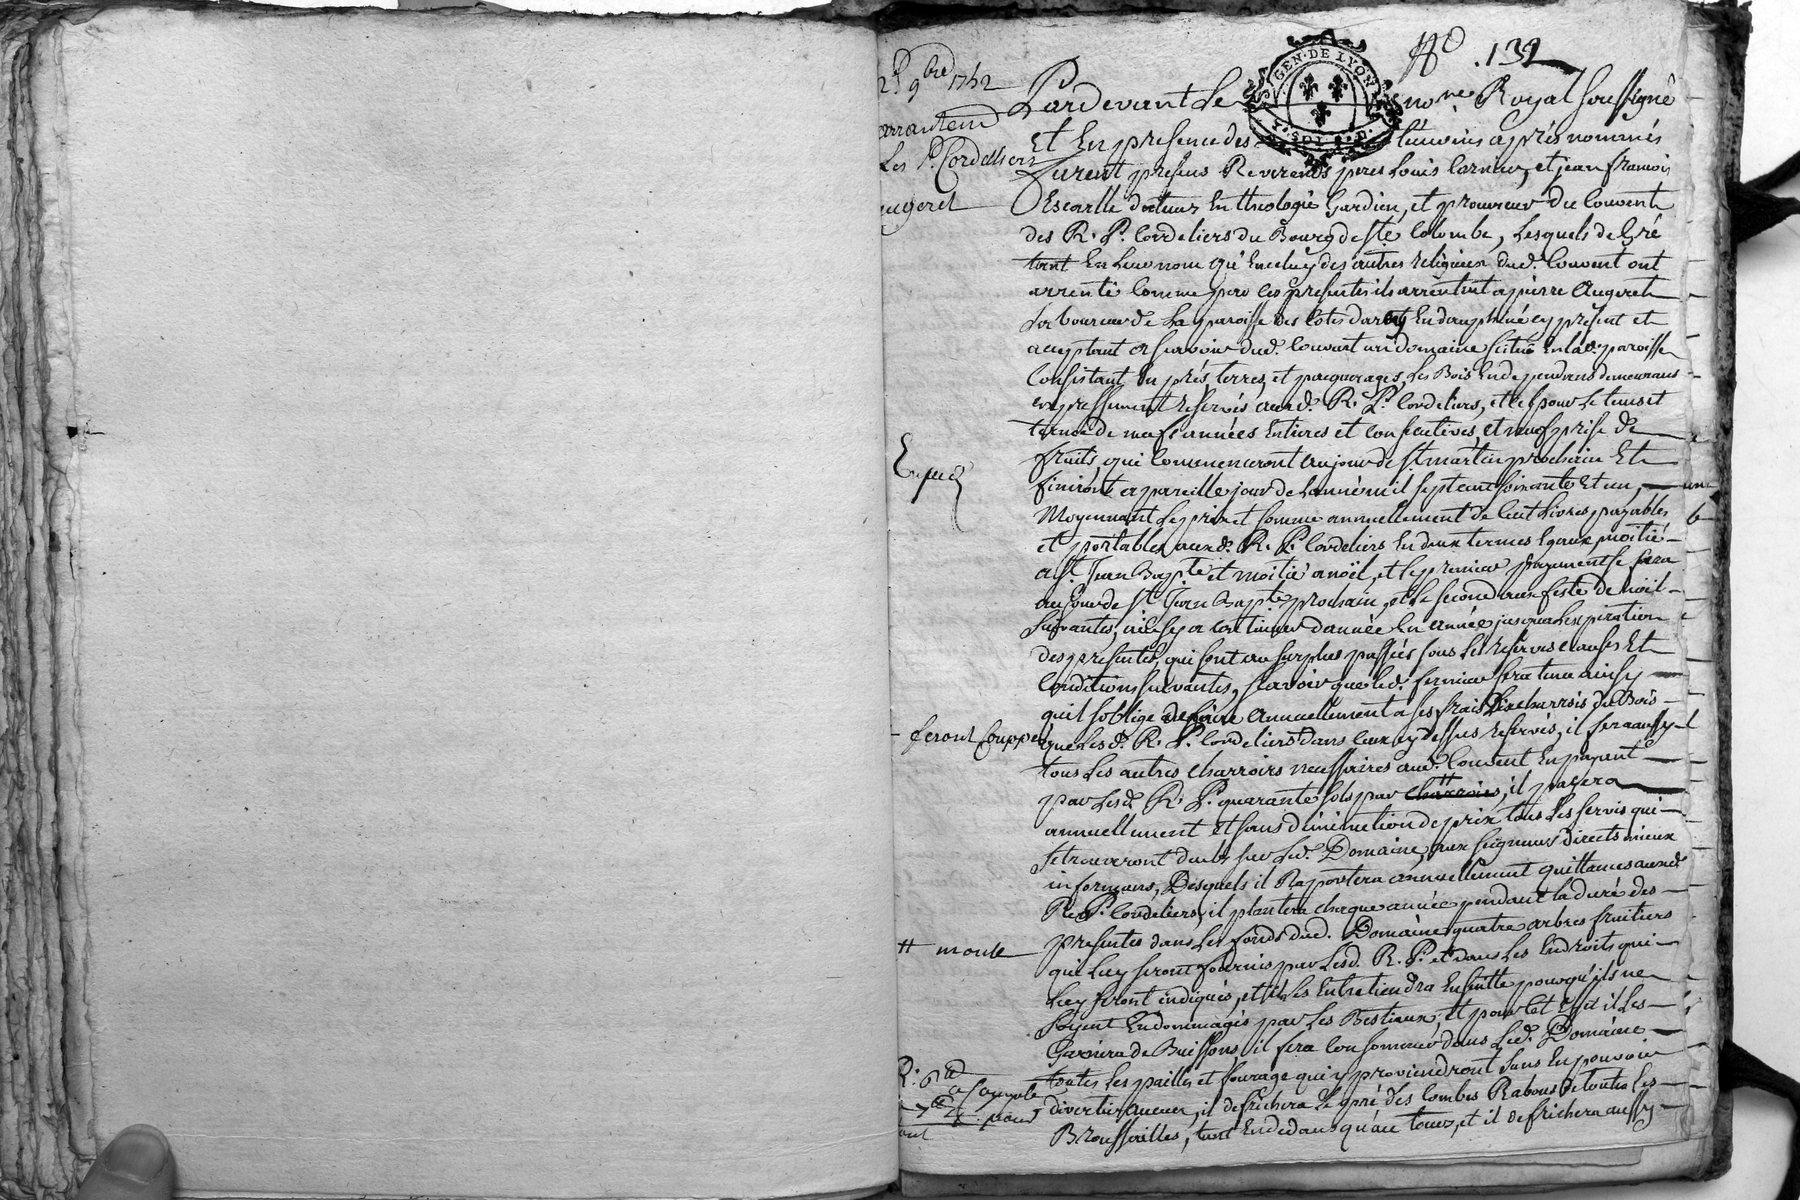 N.o 132
GEN. DE LYON
9bre 1752
Les P. Cordeliers
augeret
Pardevant Le no.re Royal soussigné
Et En presence des temoins après nommés
furent presens Reverends peres Louis et jean francois
docteurs En theologie Gardien, et procureur du Couvent
des R. P. Cordeliers du Bourg de Ste Colombe, Lesquels de gré
tant En Leur nom qu'En celuy des autres religieux dud. Couvent ont
arrenté Comme par Ces presentes ils arrentent a pierre Augeret
Laboureur de La paroisse des Cotes darey En dauphiné cy present et
acceptant a scavoir dud. Couvent un domaine scitué En lad. paroisse
Consistant En prés terres, et paquerages, Les Bois En dependans demeurans
expressement reservés auxd. R. P. Cordeliers, et ce pour Le tems et
terme de neuf années Entieres et consecutives, et neuf prise de
fruits, qui Commenceront au jour de St. martin prochain Et
finiront a pareille jour de Lannée mil sept cent soixante Et un,
Moyennant Le prix et somme annuellement de Cent Livres payables
et portables auxd. R. P. Cordeliers En deux termes Egaux, moitié
a St. Jean Bapte et moitié a noël, et Le premier payement se fera
au jour de St. Jean Bapte prochain, et Le second aux feste de noël
suivantes, ainsy a continuer d'année En année jusqua Lexpiration
des presentes, qui sont au surplus passées sous Les reserves clauses Et
Conditions suivantes, scavoir que led. fermier sera tenu ainsy
quil soblige de faire annuellement a ses frais Les charrois du Bois
- feront Coupper
que Lesd. R. P. Cordeliers dans Ceux cy dessus reservés, il fera aussy
tous Les autres Charroirs necessaires aud. Couvent En payant
par Lesd. R. P. quarante sols par charrois, il payera
annuellement Et sans diminution de prix tous Les servis qui
se trouveront dubs sur Led. Domaine, aux seigneurs directs mieux
informans, Desquels il Raportera annuellement quittances auxd.
R. P. Cordeliers, il plantera chaque année pendant la duré des
presentes dans Les fonds dud. Domaine quatre arbres fruitiers
# moule
qui Luy seront fournis par Lesd. R. P. et dans Les Endroits qui
Luy seront indiqués, et il Les Entretiendra Ensuitte pour qu'ils ne
soyent Endommagés par Les Bestiaux, et pour Cet Effet il Les
Garnira de Buissons, il fera Consommer dans Led. Domaine
toutes Les pailles et fourage qui y proviendront sans En pouvoir
divertir aucun, il defrichera Le pré des Combes Rabous de toutes Les
Broussailles, tant En dedans qu'au tour, et il defrichera aussy